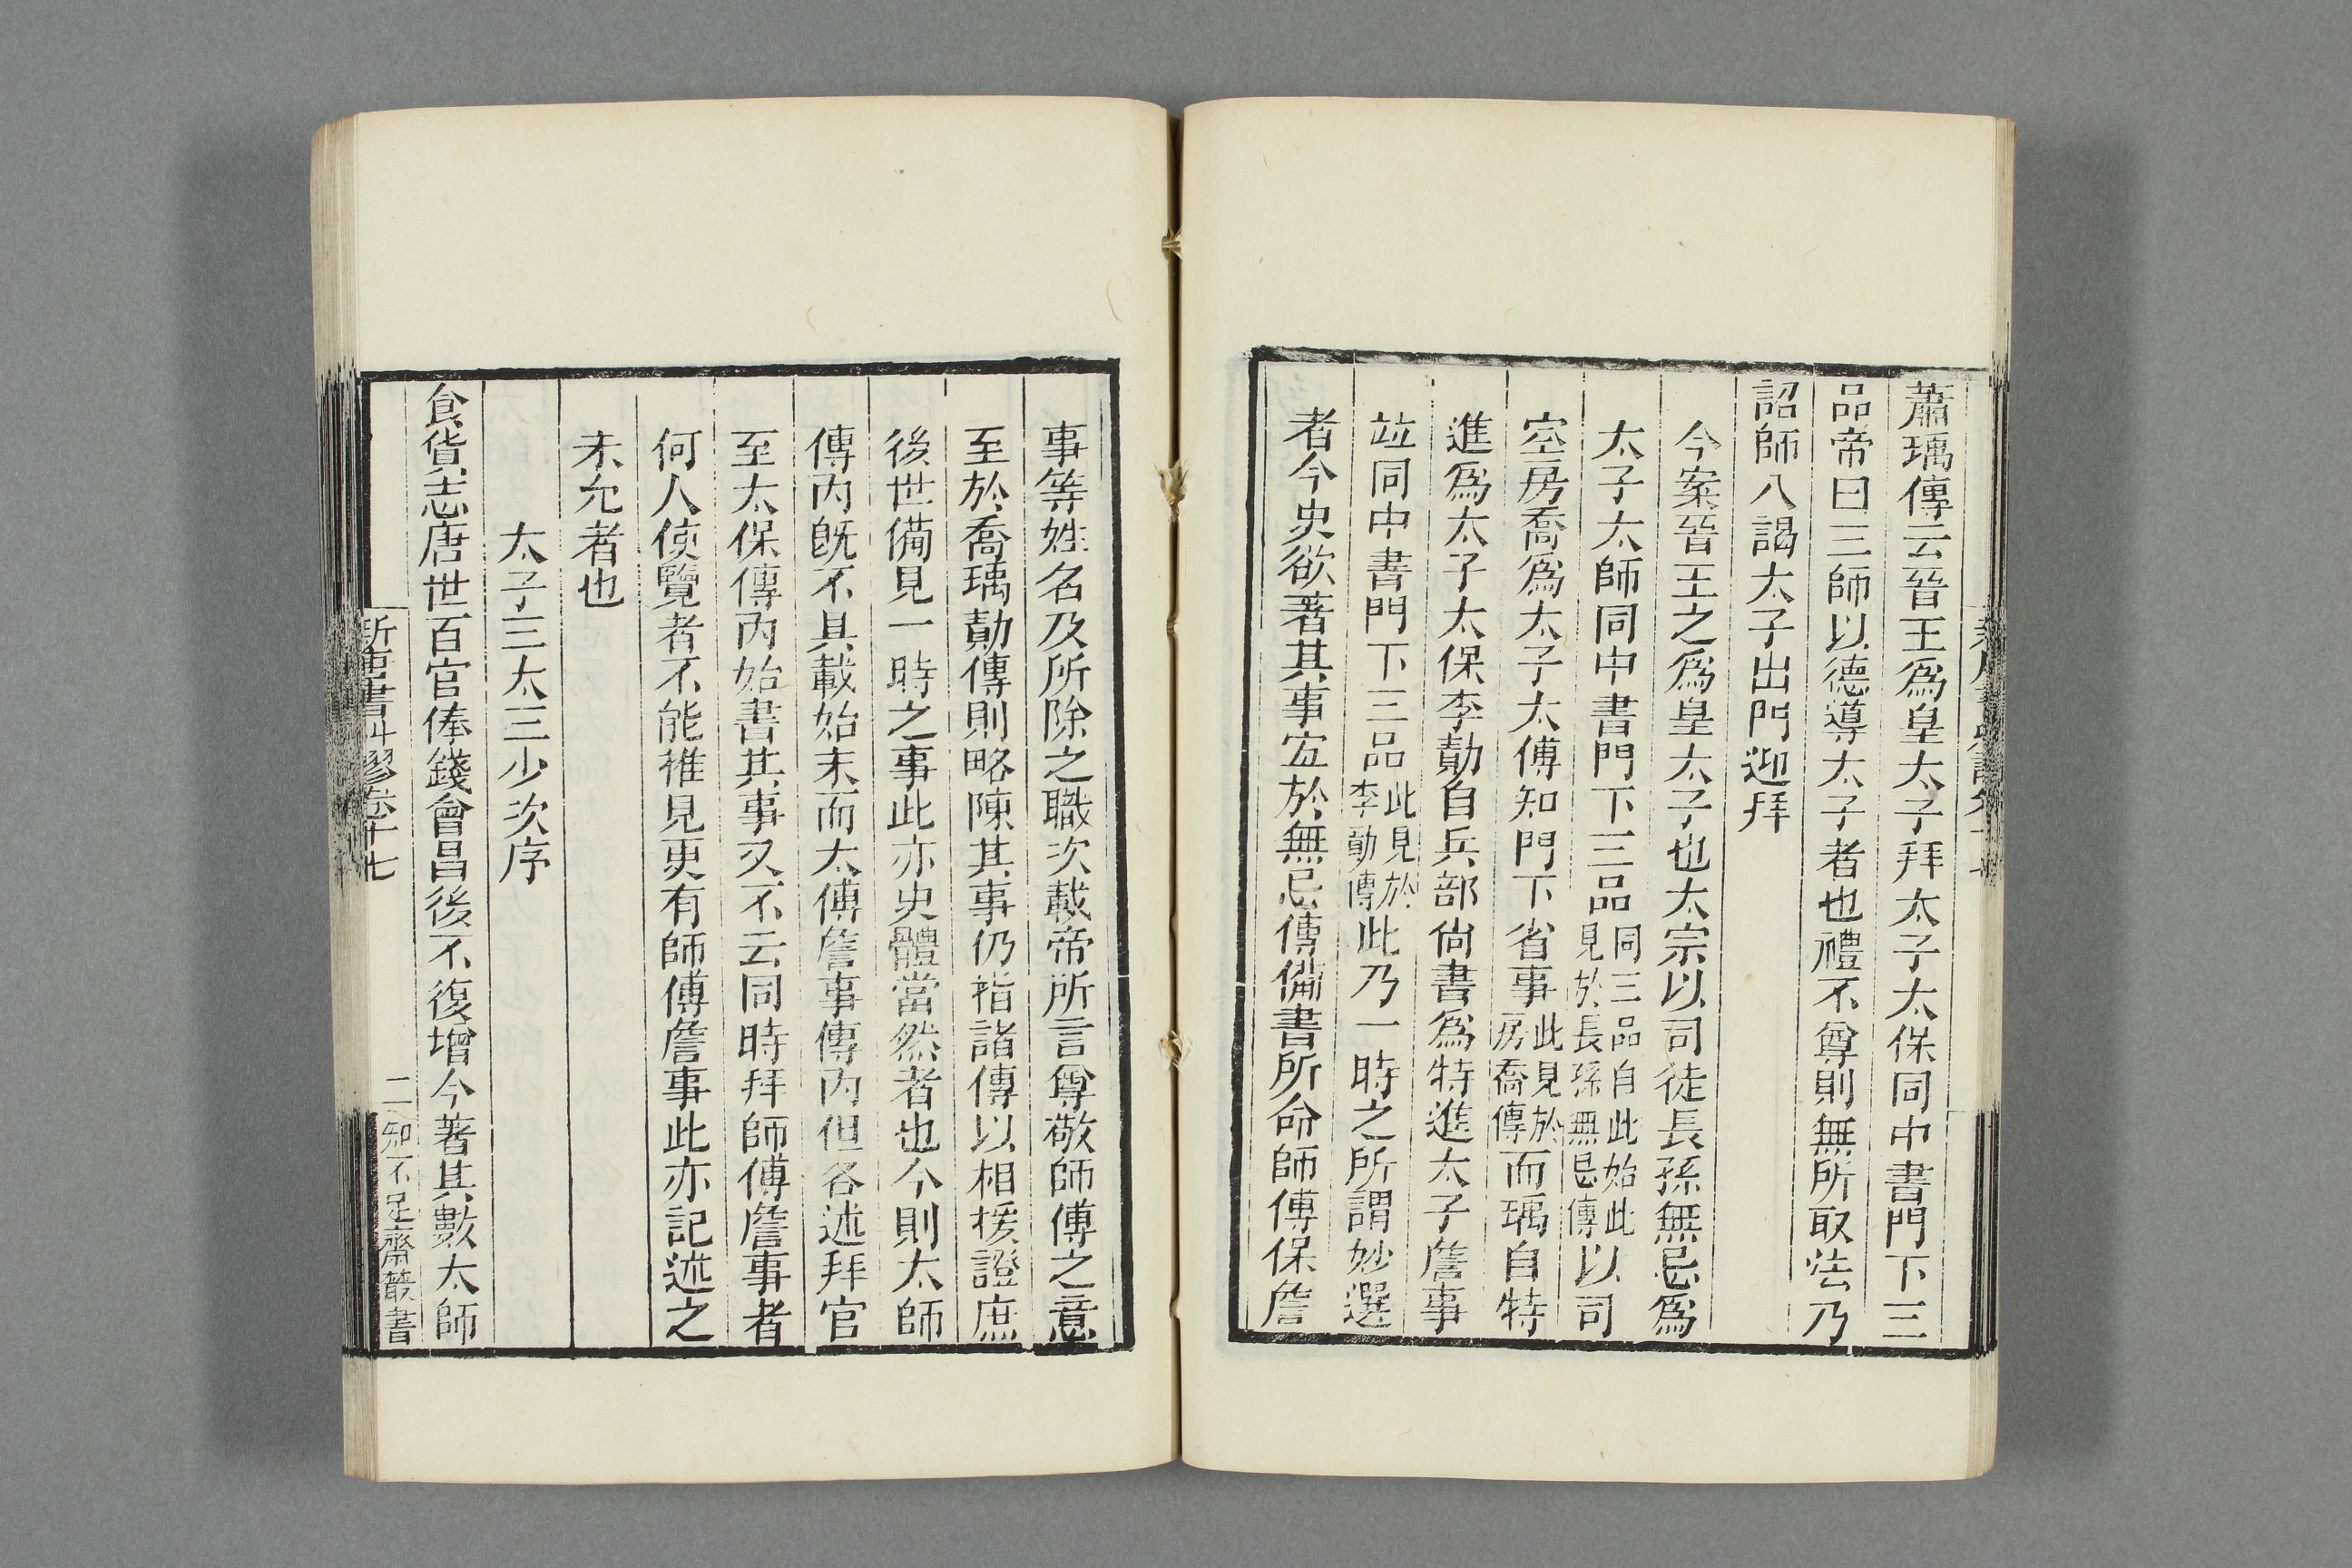 蕭瑀傳云晉王爲皇太子拜太子太保同中書門下三
品帝曰三師以德導太子者也禮不尊則無所取法乃
詔師入謁太子出門迎拜
今案晉王之爲皇太子也太宗以司徒長孫無忌爲
太子太師同中書門下三品同三品自此始此見於長孫無忌傳以司
空房喬爲太子太傅知門下省事此見於房喬傳而瑀自特
進爲太子太保李勣自兵部尙書爲特進太子詹事
竝同中書門下三品此見於李勣傳此乃一時之所謂妙選
者今史欲著其事宜於無忌傳備書所命師傅保詹
事等姓名及所除之職次載帝所言尊敬師傅之意
至於喬瑀勣傳則略陳其事仍指諸傳以相援證庶
後世備見一時之事此亦史體當然者也今則太師
傳內旣不具載始末而太傅詹事傳內但各述拜官
至太保傳內始書其事又不云同時拜師傅詹事者
何人使覽者不能推見更有師傅詹事此亦記述之
未允者也
太子三太三少次序
食貨志唐世百官俸錢會昌後不復增今著其數太師
新唐書糾謬卷十七
二
知不足齋叢書